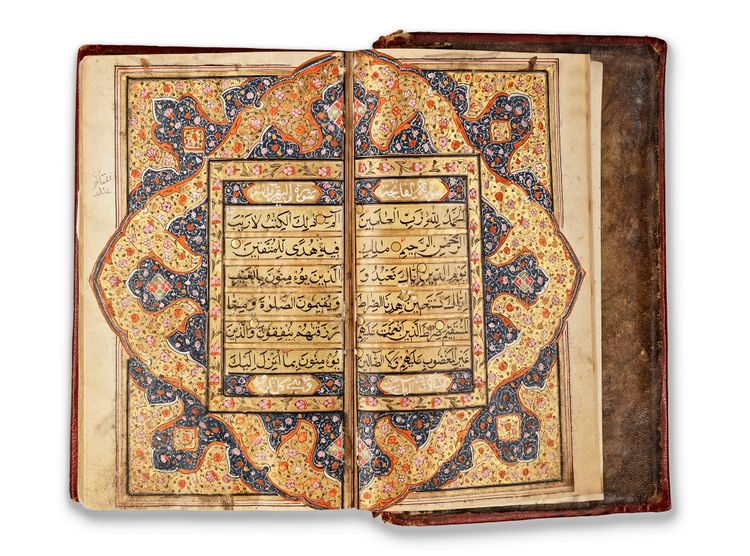 سورة الفاتحة
الحمد لله رب العلمين
الرحمن الرحيم ملك
يوم الدين اياك نعبد و
اياك نستعين اهدنا الصراط
المستقيم صراط الذين انعمت عليهم
غير المغضوب عليهم ولا الضالين
سورة البقرة
الم ذلك الكتب لا ريب
فيه هدى للمتقين
الذين يؤمنون بالغيب
ويقيمون الصلوة ومما
رزقنهم ينفقون والذين
يؤمنون بما انزل اليك